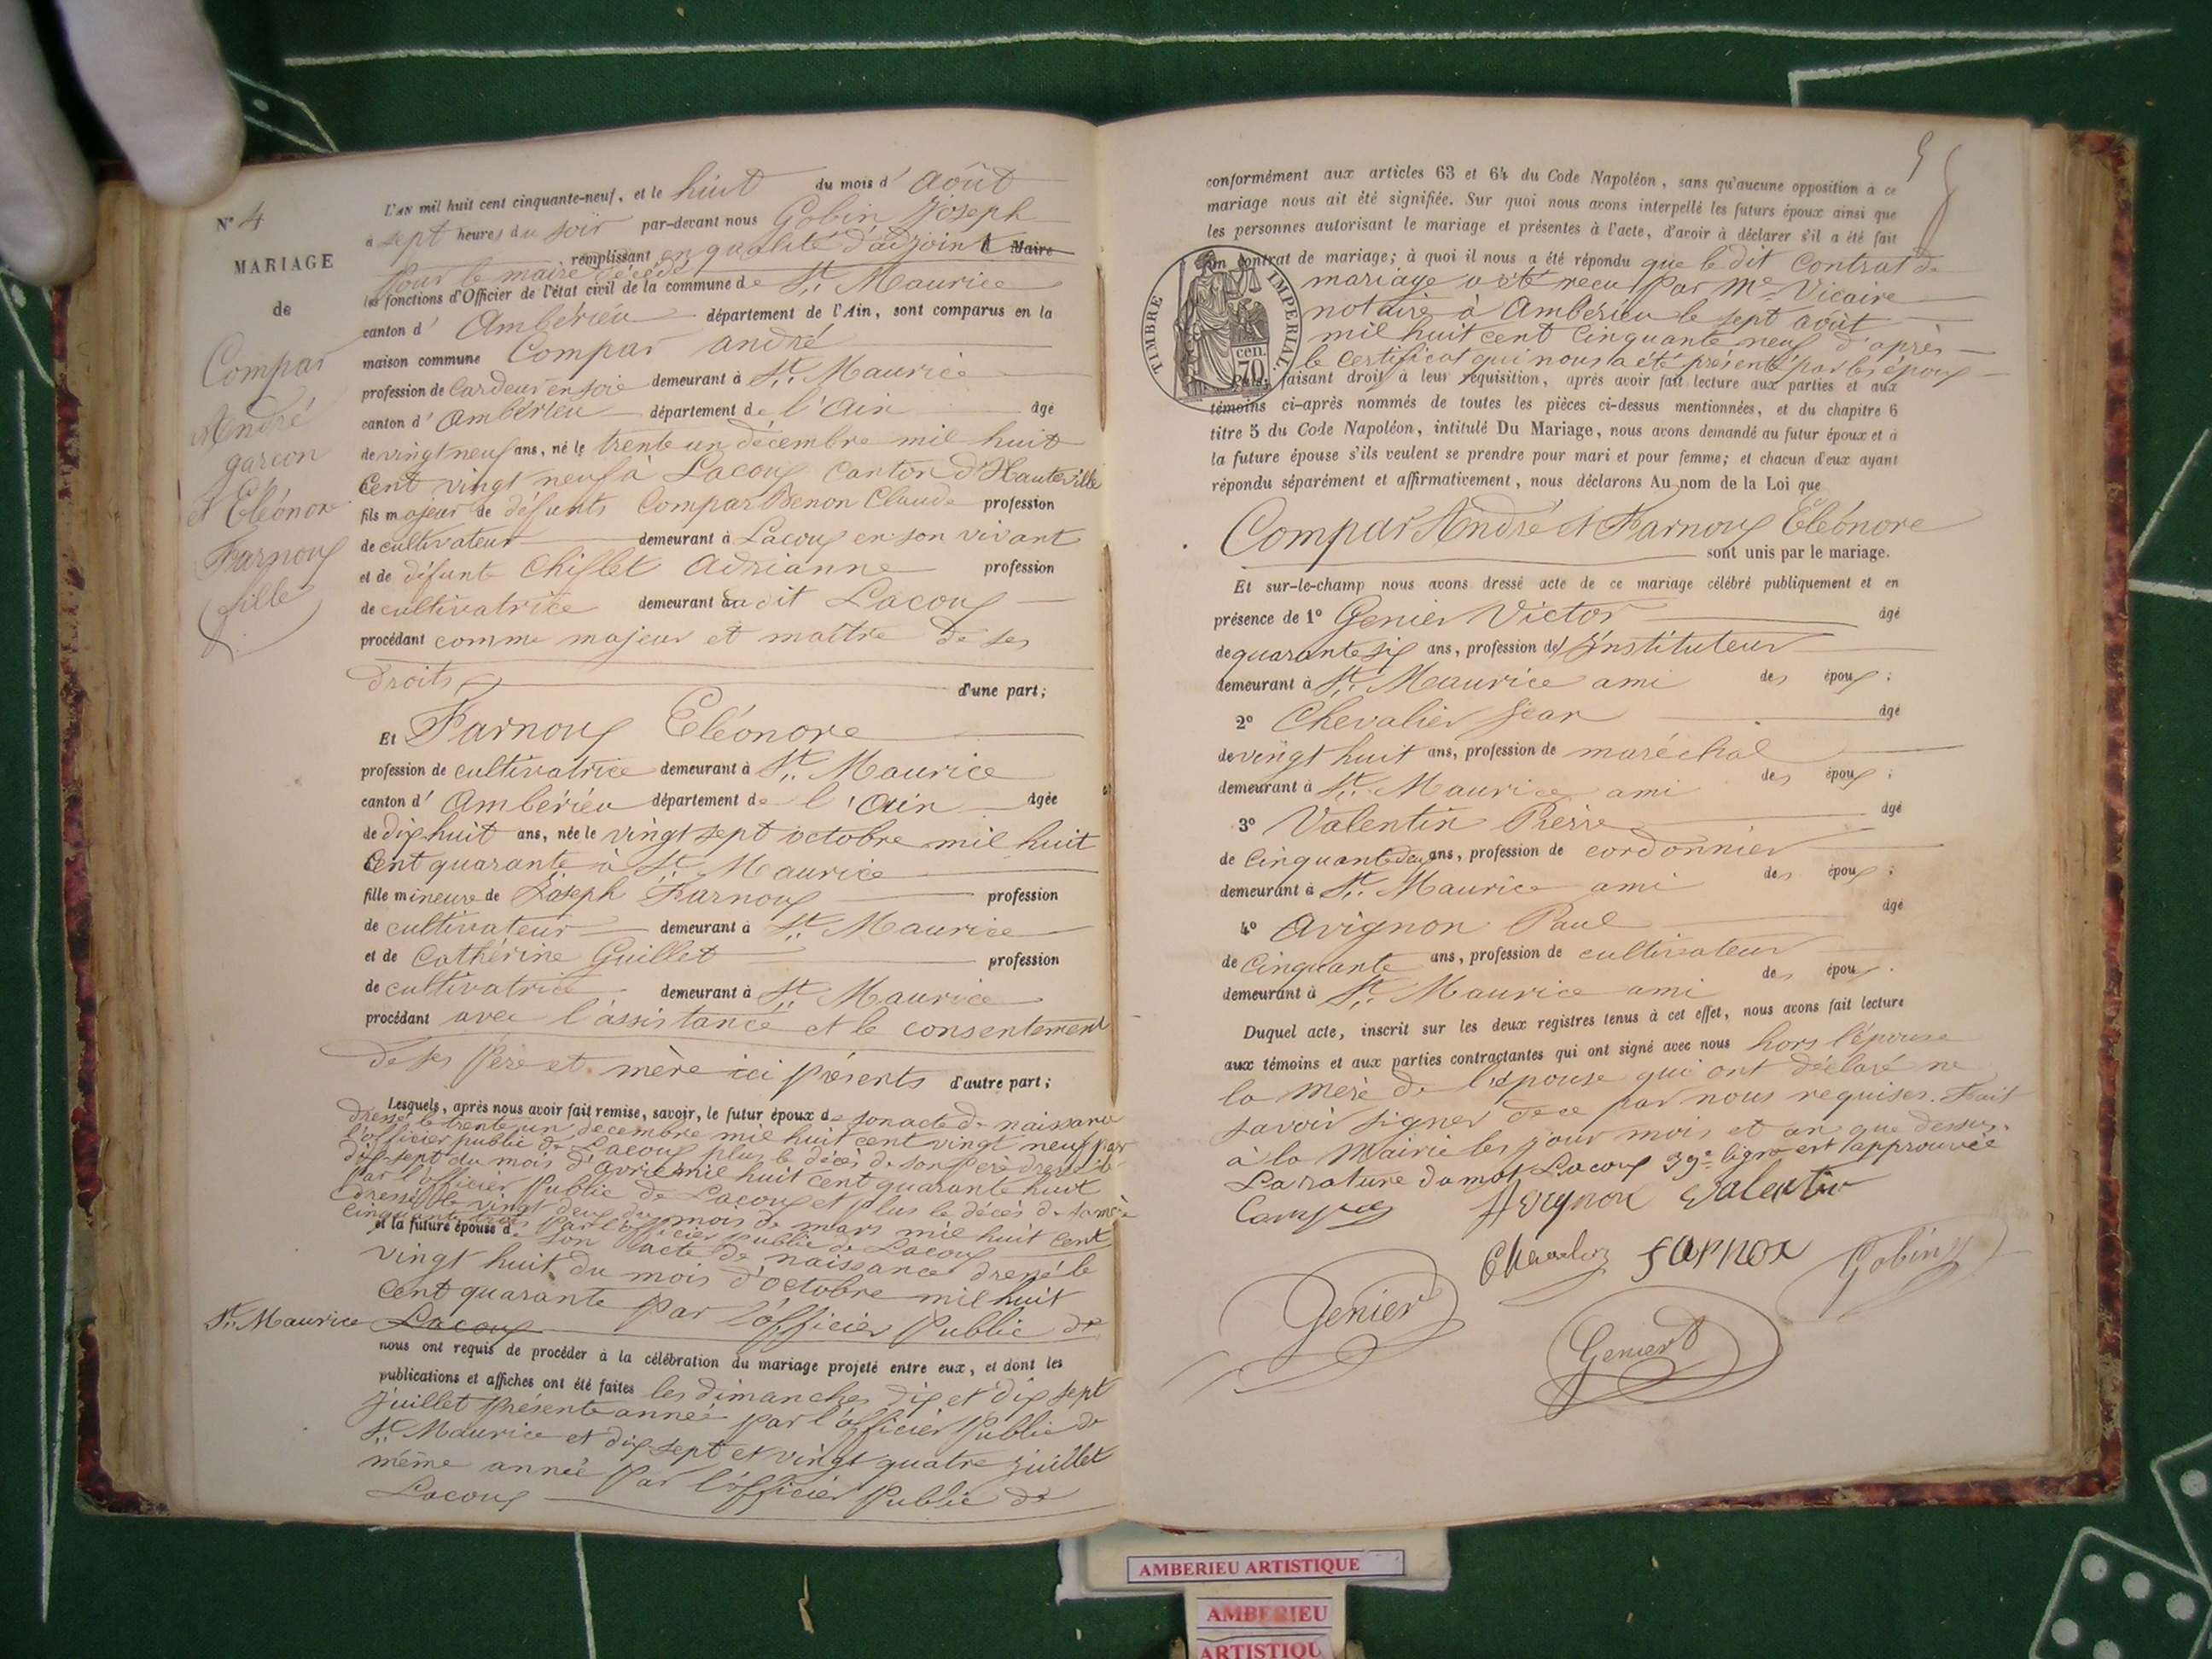 N° 4
MARIAGE
de
Compar
André
garçon
et Eléonore
Farnoux
fille
L'AN mil huit cent cinquante-neuf, et le huit du mois d' Août
à sept heures du soir par-devant nous Gobin Joseph
remplissant en qualité d'adjoint Maire
pour le maire décédé
les fonctions d'Officier de l'état civil de la commune de St. Maurice
canton d' Ambérieu département de l'Ain, sont comparus en la
maison commune Compar andré
profession de Cardeur en soie demeurant à St. Maurice
canton d' Ambérieu département de l'Ain âgé
de vingt neuf ans, né le trente un décembre mil huit
Cent vingt neuf à Lacoux Canton d'Hauteville
fils majeur de défunts Compar Benon Claude profession
de cultivateur demeurant à Lacoux en son vivant
et de défunte Chiflet Adrianne profession
de cultivatrice demeurant au dit Lacoux
procédant comme majeur et maître de ses
droits d'une part;
Et Farnoux Eléonore
profession de cultivatrice demeurant à St. Maurice
canton d' Ambérieu département de l'Ain âgée
de dix huit ans, née le vingt sept octobre mil huit
Cent quarante à St. Maurice
fille mineure de Joseph Farnoux profession
de cultivateur demeurant à St. Maurice
et de Cathérine Guillet profession
de cultivatrice demeurant à St. Maurice
procédant avec l'assistance et le consentement
de ses Père et mère ici présents d'autre part;
Lesquels, après nous avoir fait remise, savoir, le futur époux de son acte de naissance
dressé le trente un decembre mil huit cent vingt neuf par
l'officier public de Lacoux plus le décès de son père dressé le
dix-sept du mois d'avril mil huit cent quarante huit
par l'officier Public de Lacoux et plus le décès de sa mère
dressé le vingt deux du mois de mars mil huit cent
cinquante trois par l'officier public de Lacoux
et la future épouse de son acte de naissance dressé le
vingt huit du mois d'octobre mil huit
cent quarante par l'officier Public de
St. Maurice Lacoux
nous ont requis de procéder à la célébration du mariage projeté entre eux, et dont les
publications et affiches ont été faites les dimanches dix et dix sept
juillet présente année par l'officier Public de
St. Maurice et dix-sept et vingt quatre juillet
même année par l'officier Public de
Lacoux
conformément aux articles 63 et 64 du Code Napoléon, sans qu'aucune opposition à ce
mariage nous ait été signifiée. Sur quoi nous avons interpellé les futurs époux ainsi que
les personnes autorisant le mariage et présentes à l'acte, d'avoir à déclarer s'il a été fait
un contrat de mariage; à quoi il nous a été répondu que le dit Contrat de
mariage a été recu par Me. Vicaire
notaire à Ambérieu le sept août
mil huit cent Cinquante neuf d'après
le Certificat qui nous a été présenté par les époux
TIMBRE IMPERIAL
70 cen.
faisant droit à leur réquisition, après avoir fait lecture aux parties et aux
témoins ci-après nommés de toutes les pièces ci-dessus mentionnées, et du chapitre 6
titre 5 du Code Napoléon, intitulé Du Mariage, nous avons demandé au futur époux et à
la future épouse s'ils veulent se prendre pour mari et pour femme; et chacun d'eux ayant
répondu séparément et affirmativement, nous déclarons Au nom de la Loi que
Compar André et Farnoux Eléonore
sont unis par le mariage.
Et sur-le-champ nous avons dressé acte de ce mariage célébré publiquement et en
présence de 1° Genier Victor âgé
de quarante six ans, profession d' Instituteur
demeurant à St. Maurice ami des époux;
2° Chevalier Jean âgé
de vingt huit ans, profession de maréchal
demeurant à St. Maurice ami des époux;
3° Valentin Pierre âgé
de Cinquante deux ans, profession de cordonnier
demeurant à St. Maurice ami des époux;
4° Avignon Paul âgé
de Cinquante ans, profession de cultivateur
demeurant à St. Maurice ami des époux.
Duquel acte, inscrit sur les deux registres tenus à cet effet, nous avons fait lecture
aux témoins et aux parties contractantes qui ont signé avec nous hors l'épouse
la mère de l'épouse qui ont déclaré ne
savoir signer de ce par nous requises. Fait
à la Mairie les jour mois et an que dessus.
La rature du mot Lacoux 39e ligne est approuvée
Compar Avignon Valentin
Chevalier FARNOX Gobin
Genier
Genier
AMBERIEU ARTISTIQUE
AMBERIEU
ARTISTIQU